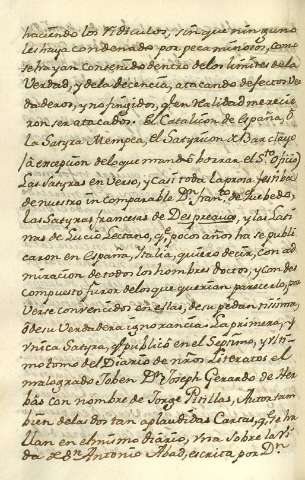 haciendo los ridiculos, sin que ninguno
les haya condenado por pecaminosos, como
se hayan contenido dentro delos limites dela
Verdad, y dela decencia, atacando defectos Ver
daderos, y no fingidos, qe. en realidad merecie
ron ser atacados. El Catalicon de España, ô
la Satyra Menipea, el Satyricon de Barclayo
(à excepcion delo que mandò borrar el Sto. Oficio)
las Satyras en Verso, y casi toda la prosa festiba
de nuestro incomparable Dn. Franco. de Quebedo,
las Satyras francesas de Despreaux, y las Lati
nas de Lucio Sectano, qe. pocos años ha se publi
caron en España, Italia, quiero decir, con ad
miracion de todos los hombres doctos, y con des
compuesto furor delos que querian parecerlo, por
Verse convencidos en ellas, de su pedantisima,
ò de su Verdadera ignorancia. La primera, y
Vnica Satyra, qe. publicó en el Septimo, y Vlti
mo tomo del Diario de nros. Literatos el
malogrado Joben Dn. Joseph Gerardo de Her
bàs con nombre de Jorge Pitillas, Autor tam
bien delas dos tan aplaudidas Cartas, qe. se ha
llan en el mismo diario, Vna sobre la Vi
da de Sn. Antonio Abad, escrita por Dn.